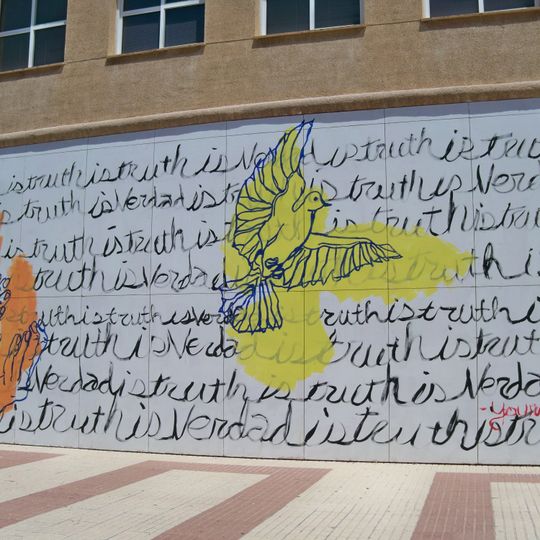 istruthistruthisVerdadistruthistru
struthisVerdadistruthistruthisVerd
istruthistruthistruthistru
struthisVerdadistruthis
istruthistruthisVerdtruthistruthi
truthisVerdadistruthistrut
VerdadistruthistruthisVerda
istruthisVerdadistruthistr